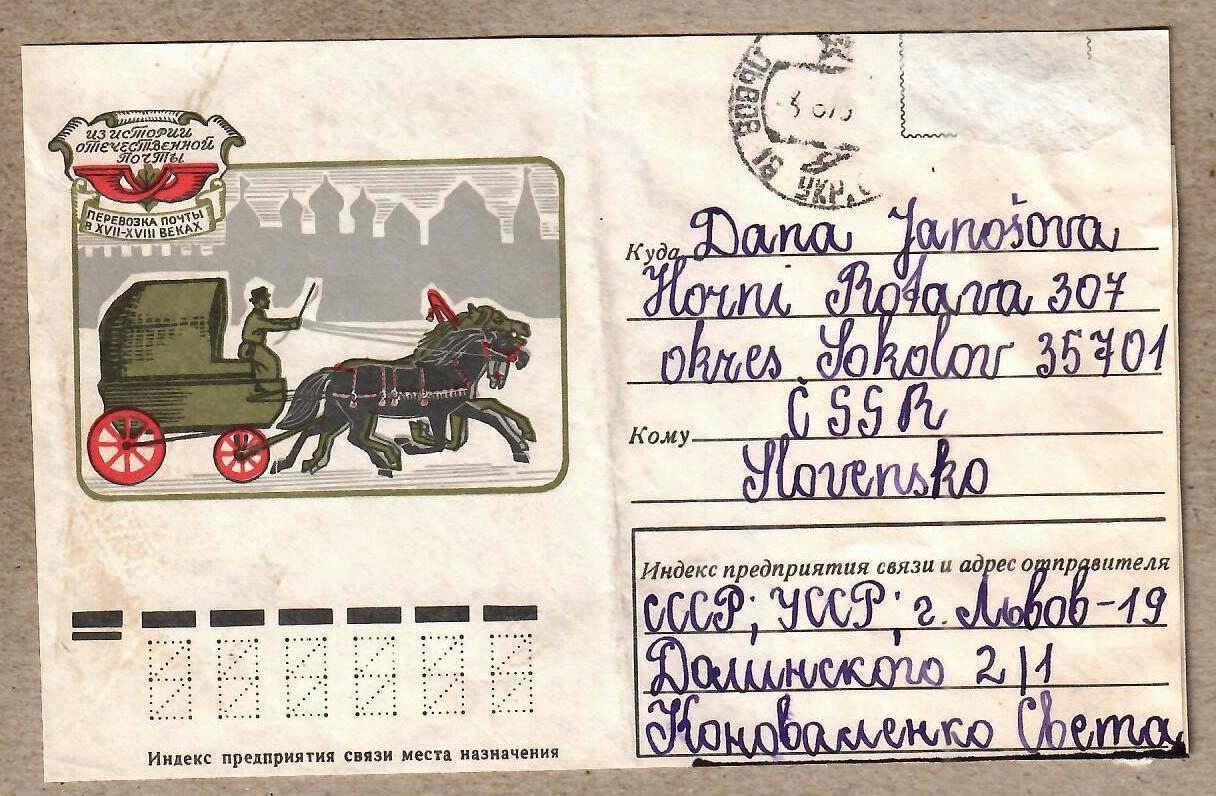 ИЗ ИСТОРИИ
ОТЕЧЕСТВЕННОЙ
ПОЧТЫ
ПЕРЕВОЗКА ПОЧТЫ
В XVII-XVIII ВЕКАХ
ЛЬВОВ 19 УКР.С
Куда Dana Janošova
Horni Rotava 307
okres Sokolov 35701
Кому ČSSR
Slovensko
Индекс предприятия связи и адрес отправителя
СССР; УССР; г. Львов-19
Долинского 2/1
Коноваленко Света
Индекс предприятия связи места назначения